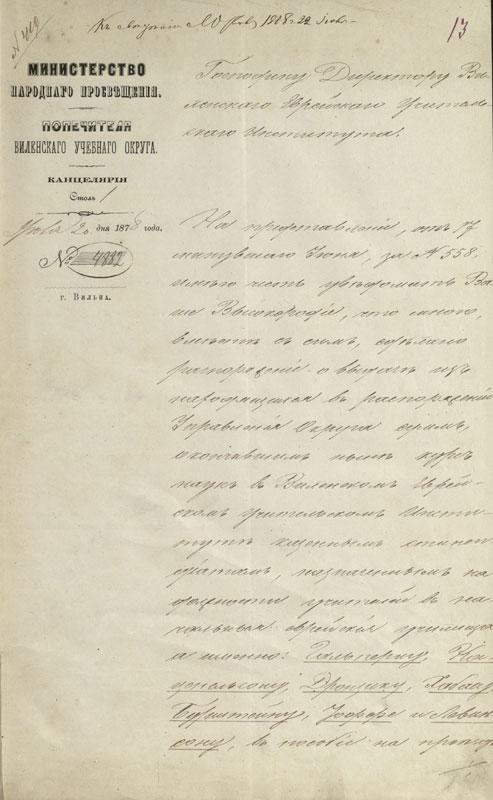 № 410
13
МИНИСТЕРСТВО
НАРОДНАГО ПРОСВѢЩЕНІЯ.
ПОПЕЧИТЕЛЯ
ВИЛЕНСКАГО УЧЕБНАГО ОКРУГА.
КАНЦЕЛЯРІЯ
Столъ 1
дня 1878 года.
№ 4882
г. Вильна.
Господину Директору Ви-
ленскаго Еврейскаго Учитель-
скаго Института.
На представленіе, отъ 17
минувшаго Іюня, за № 558,
имѣю честь увѣдомить Ва-
ше Высокородіе, что мною,
вмѣстѣ съ симъ, сдѣлано
распоряженіе о выдачѣ изъ
находящихся въ распоряженіи
Управленія Округа суммъ,
окончившимъ нынѣ курсъ
наукъ въ Виленскомъ Еврей-
скомъ Учительскомъ Инсти-
тутѣ казеннымъ стипен-
діатамъ, назначеннымъ на
должности учителей въ на-
чальныя еврейскія училища
а именно: Гальперину, Ка-
ценельсону,
и Левин-
сону, въ пособіе на проѣздъ